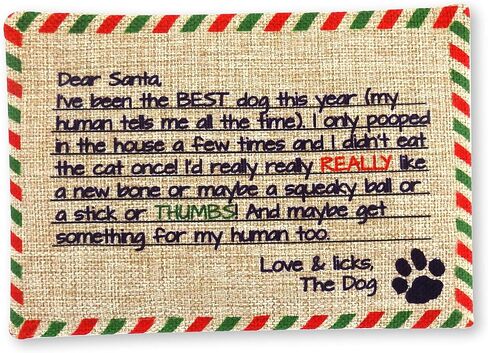 Dear Santa,
I've been the BEST dog this year (my
human tells me all the time). I only pooped
in the house a few times and I didn't eat
the cat once! I'd really really REALLY like
a new bone or maybe a squeaky ball or
a stick or THUMBS! And maybe get
something for my human too.
Love & licks,
The Dog